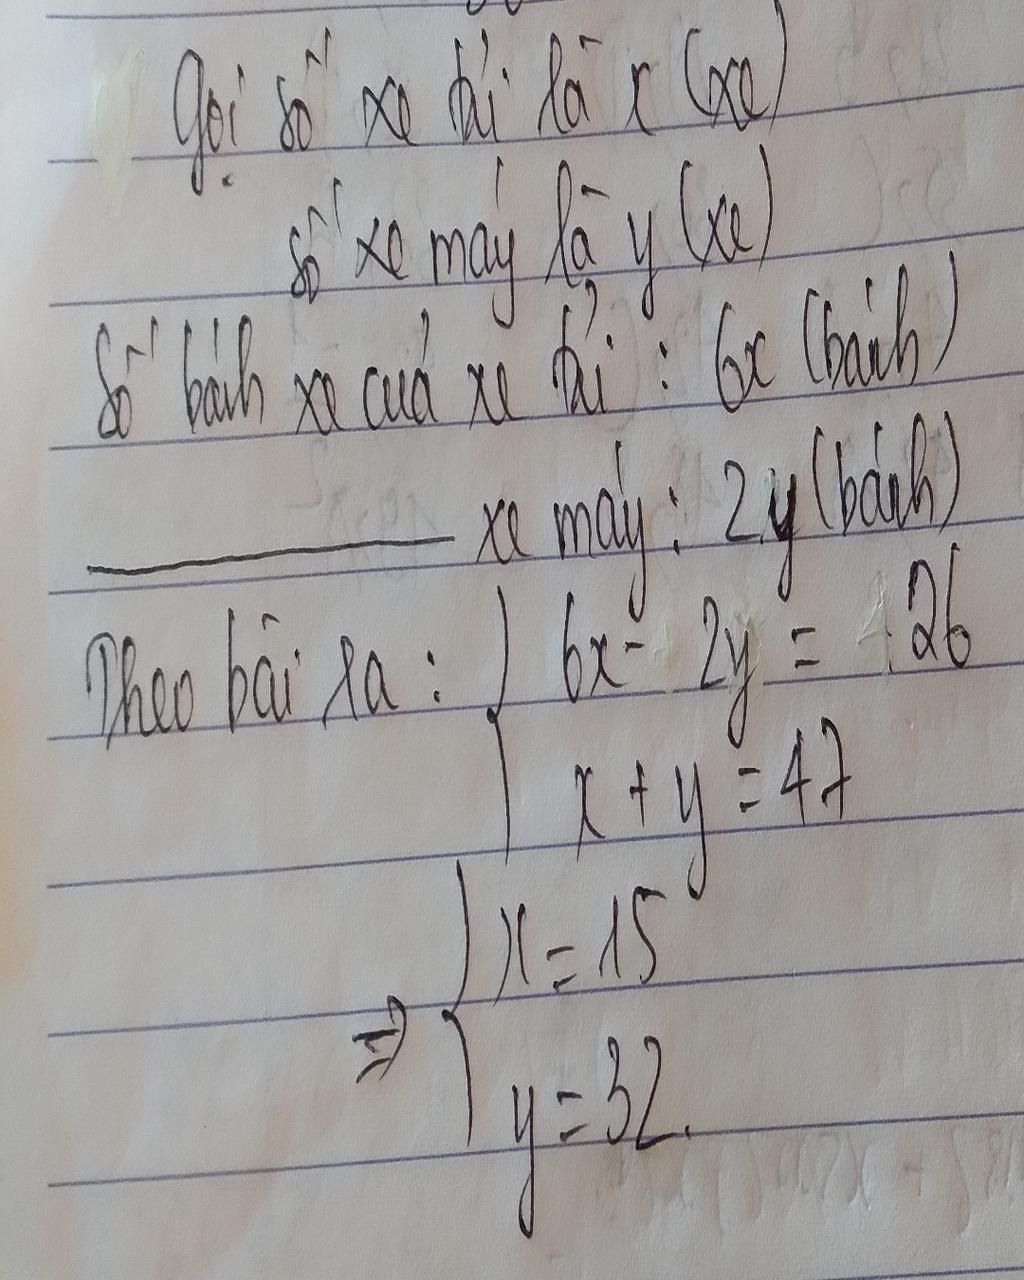 Gọi số xe tải là x (xe)
số xe máy là y (xe)
Số bánh xe của xe tải : 6x (bánh)
xe máy : 2.y (bánh)
Theo bài ra : { 6x - 2y = 26
x + y = 47
=> { x = 15
y = 32.